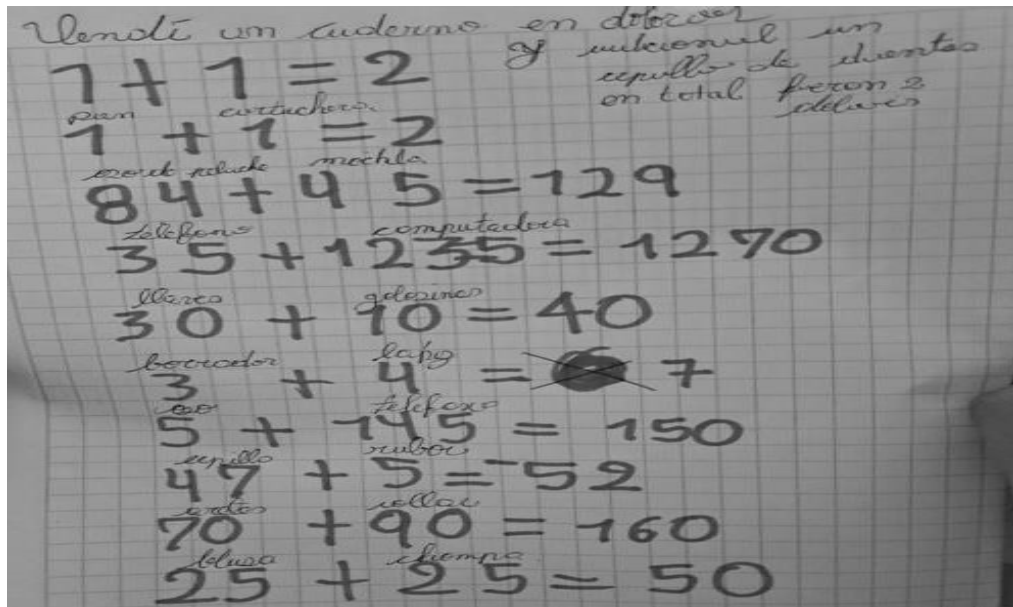 Vendí um cuderno en
y un
cepullo de dientes
en total feron 2
dolares
1 + 1 = 2
pan cartuchera
1 + 1 = 2
peluche mochla
84 + 45 = 129
telefono computadora
35 + 1235 = 1270
llaves golosinas
30 + 10 = 40
borrador lapiz
3 + 4 = 7
oso telefoxo
5 + 145 = 150
cepillo rubor
47 + 5 = 52
collar
70 + 90 = 160
blusa chompa
25 + 25 = 50